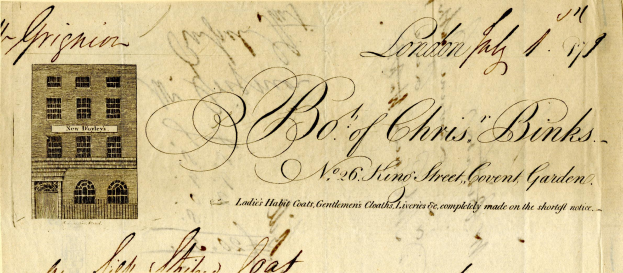 Grignion
London July 1st 179
New Worley's
Bot. of Chrisr. Binks.
No. 26, King Street, Covent Garden.
Ladie's Habit Coats, Gentlemen's Cloaths, Liveries &c. completely made on the shortest notice.
Silk Striped Coat